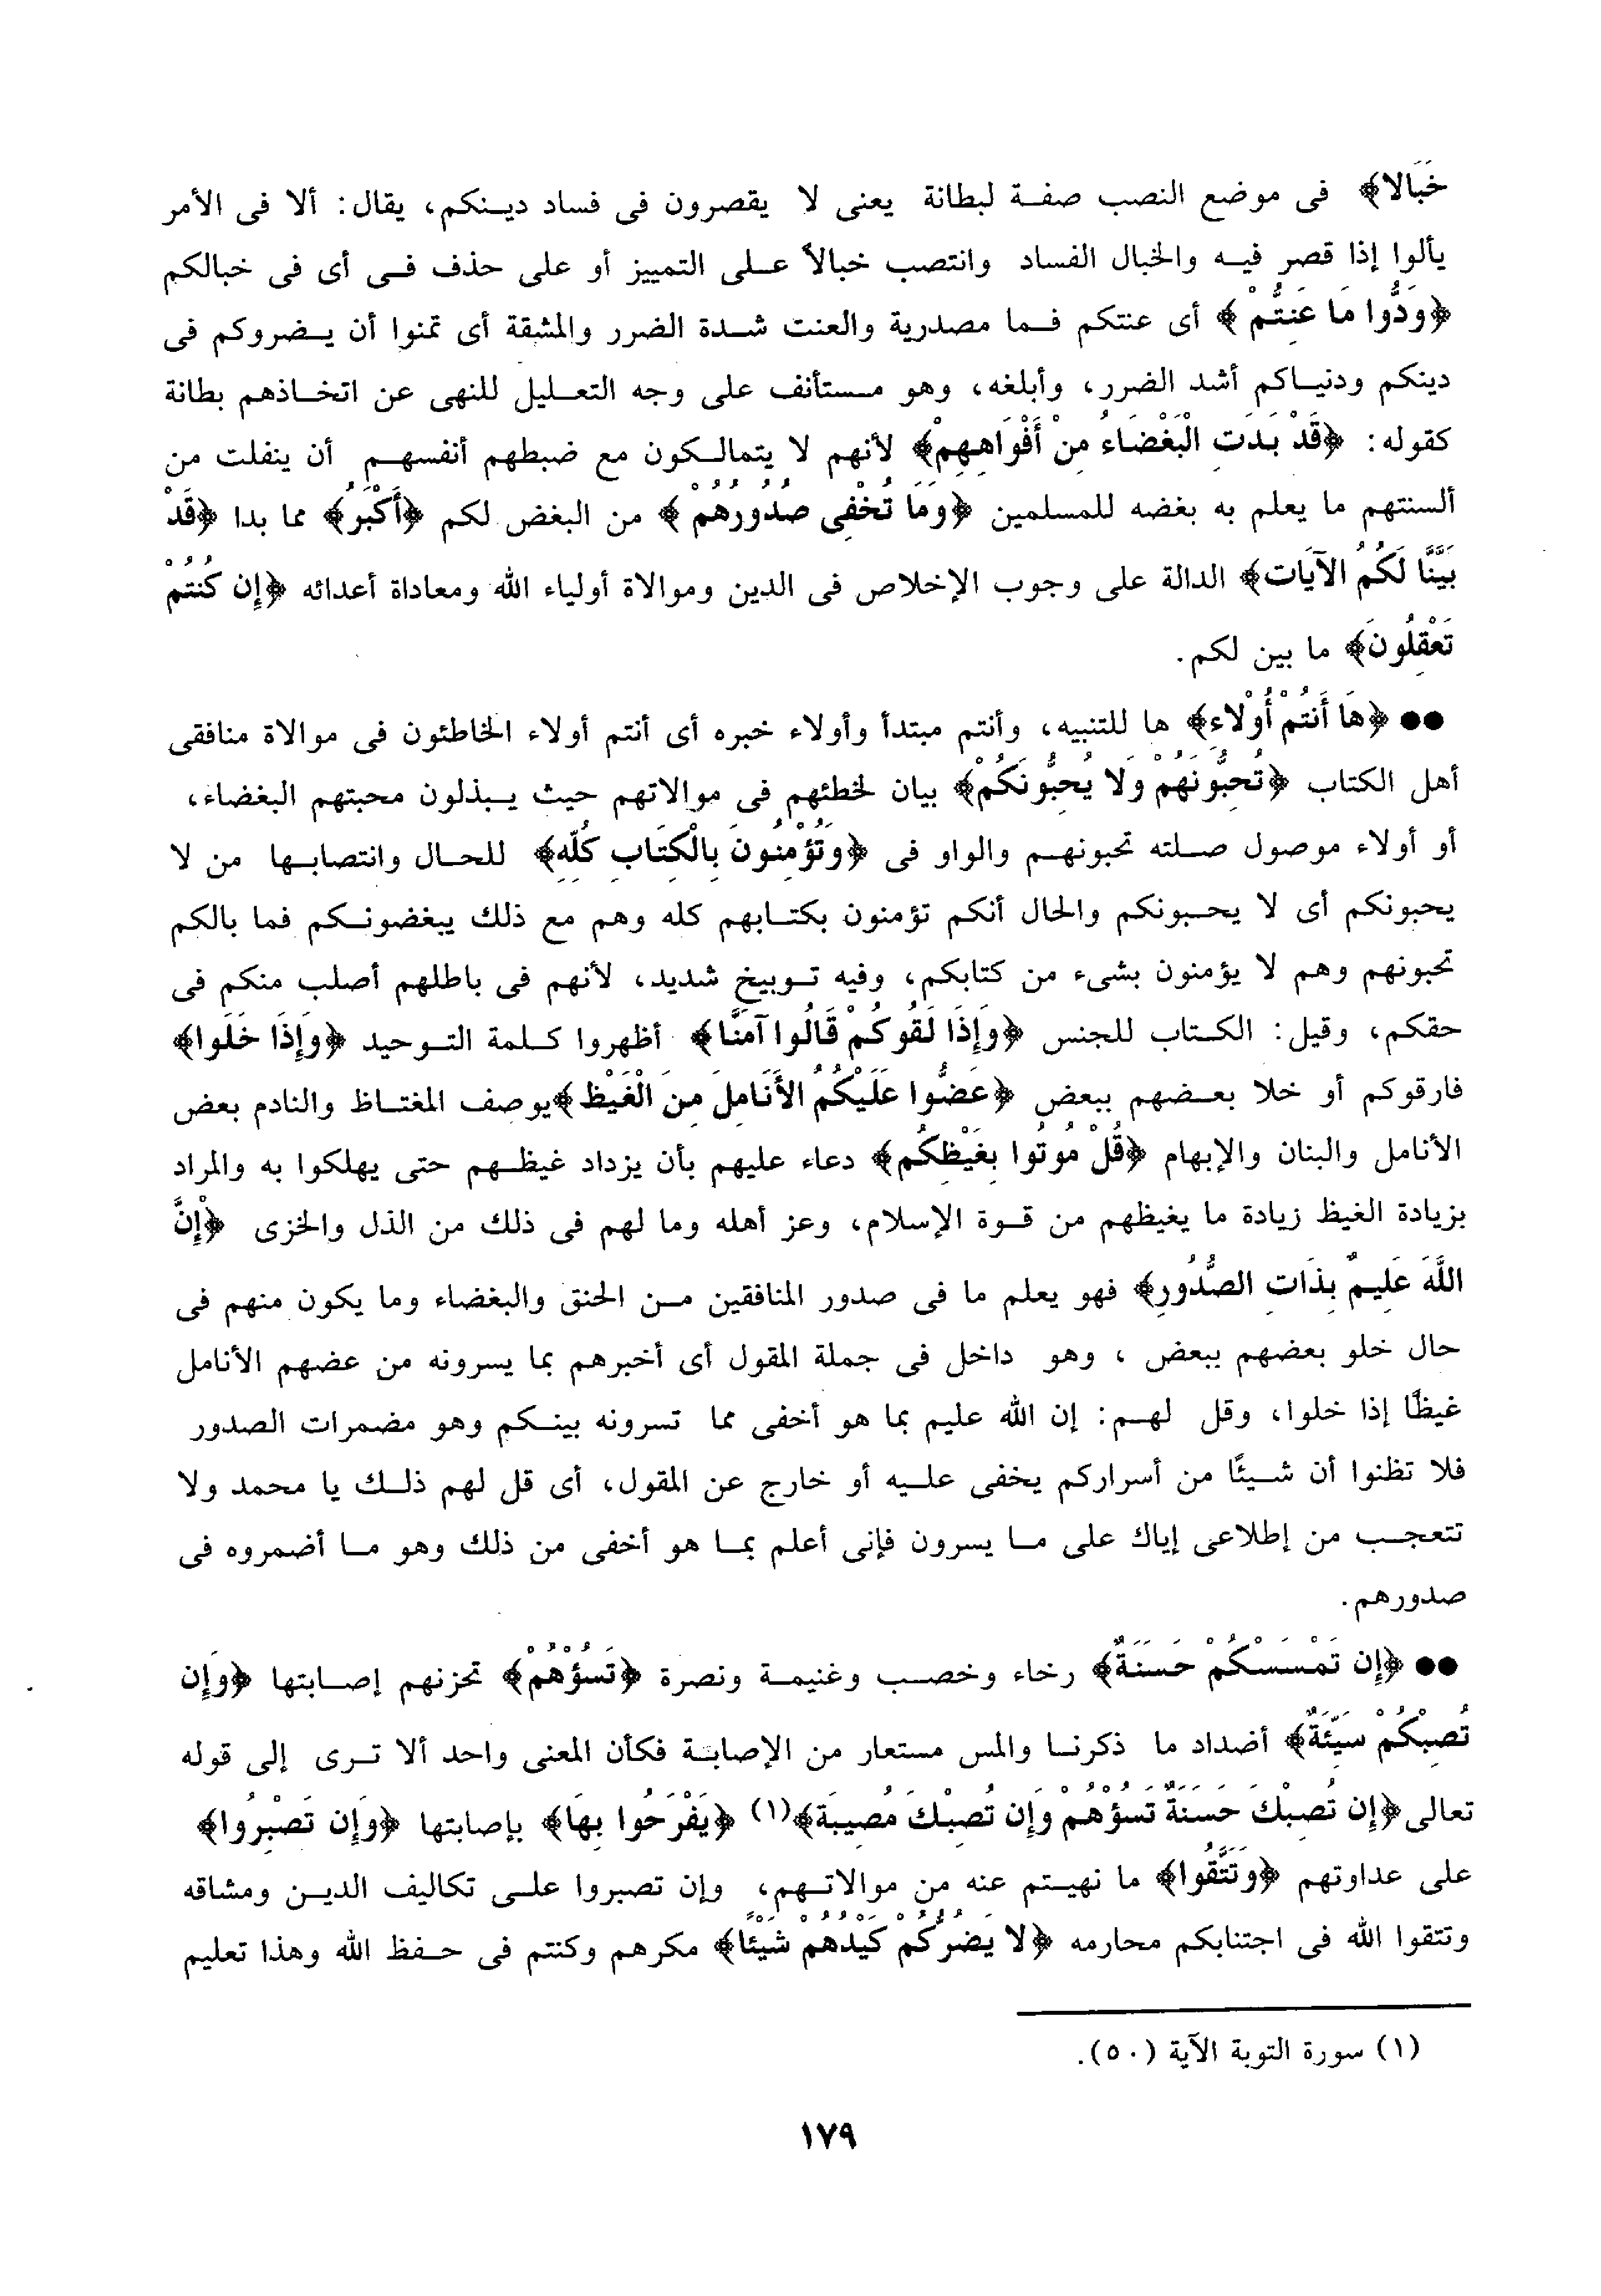 خَبَالا﴾ فى موضع النصب صفة لبطانة يعنى لا يقصرون فى فساد دينكم، يقال: ألا فى الأمر
يألوا إذا قصر فيه والخبال الفساد وانتصب خبالاً على التمييز أو على حذف فى أى فى خبالكم
﴿وَدُّوا مَا عَنِتُّمْ ﴾ أى عنتكم فما مصدرية والعنت شدة الضرر والمشقة أى تمنوا أن يضروكم فى
دينكم ودنياكم أشد الضرر، وأبلغه، وهو مستأنف على وجه التعليل للنهى عن اتخاذهم بطانة
كقوله: ﴿قَدْ بَدَتِ الْبَغْضَاءُ مِنْ أَفْوَاهِهِمْ﴾ لأنهم لا يتمالكون مع ضبطهم أنفسهم أن ينفلت من
ألسنتهم ما يعلم به بغضه للمسلمين ﴿وَمَا تُخْفِى صُدُورُهُمْ ﴾ من البغض لكم ﴿أَكْبَرُ﴾ مما بدا ﴿قَدْ
بَيَّنَّا لَكُمُ الآيَاتِ﴾ الدالة على وجوب الإخلاص فى الدين وموالاة أولياء الله ومعاداة أعدائه ﴿إِن كُنتُمْ
تَعْقِلُونَ﴾ ما بين لكم.
●● ﴿هَا أَنتُمْ أُوْلاءِ﴾ ها للتنبيه، وأنتم مبتدأ وأولاء خبره أى أنتم أولاء الخاطئون فى موالاة منافقى
أهل الكتاب ﴿تُحِبُّونَهُمْ وَلا يُحِبُّونَكُمْ﴾ بيان لخطئهم فى موالاتهم حيث يبذلون محبتهم البغضاء،
أو أولاء موصول صلته تحبونهم والواو فى ﴿وَتُؤْمِنُونَ بِالْكِتَابِ كُلِّهِ﴾ للحال وانتصابها من لا
يحبونكم أى لا يحبونكم والحال أنكم تؤمنون بكتابهم كله وهم مع ذلك يبغضونكم فما بالكم
تحبونهم وهم لا يؤمنون بشىء من كتابكم، وفيه توبيخ شديد، لأنهم فى باطلهم أصلب منكم فى
حقكم، وقيل: الكتاب للجنس ﴿وَإِذَا لَقُوكُمْ قَالُوا آمَنَّا﴾ أظهروا كلمة التوحيد ﴿وَإِذَا خَلَوا﴾
فارقوكم أو خلا بعضهم ببعض ﴿عَضُّوا عَلَيْكُمُ الأَنَامِلَ مِنَ الْغَيْظِ ﴾يوصف المغتاظ والنادم بعض
الأنامل والبنان والإبهام ﴿قُلْ مُوتُوا بِغَيْظِكُم﴾ دعاء عليهم بأن يزداد غيظهم حتى يهلكوا به والمراد
بزيادة الغيظ زيادة ما يغيظهم من قوة الإسلام، وعز أهله وما لهم فى ذلك من الذل والخزى ﴿إِنَّ
اللَّهَ عَلِيمٌ بِذَاتِ الصُّدُورِ﴾ فهو يعلم ما فى صدور المنافقين من الحنق والبغضاء وما يكون منهم فى
حال خلو بعضهم ببعض ، وهو داخل فى جملة المقول أى أخبرهم بما يسرونه من عضهم الأنامل
غيظًا إذا خلوا، وقل لهم: إن الله عليم بما هو أخفى مما تسرونه بينكم وهو مضمرات الصدور
فلا تظنوا أن شيئًا من أسراركم يخفى عليه أو خارج عن المقول، أى قل لهم ذلك يا محمد ولا
تتعجب من إطلاعى إياك على ما يسرون فإنى أعلم بما هو أخفى من ذلك وهو ما أضمروه فى
صدورهم.
●● ﴿إِن تَمْسَسْكُمْ حَسَنَةٌ﴾ رخاء وخصب وغنيمة ونصرة ﴿تَسُؤْهُمْ﴾ تحزنهم إصابتها ﴿وَإِن
تُصِبْكُمْ سَيِّئَةٌ﴾ أضداد ما ذكرنا والمس مستعار من الإصابة فكأن المعنى واحد ألا ترى إلى قوله
تعالى ﴿إِن تُصِبْكَ حَسَنَةٌ تَسُؤْهُمْ وَإِن تُصِبْكَ مُصِيبَةٌ﴾(١) ﴿يَفْرَحُوا بِهَا﴾ بإصابتها ﴿وَإِن تَصْبِرُوا﴾
على عداوتهم ﴿وَتَتَّقُوا﴾ ما نهيتم عنه من موالاتهم، وإن تصبروا على تكاليف الدين ومشاقه
وتتقوا الله فى اجتنابكم محارمه ﴿لا يَضُرُّكُمْ كَيْدُهُمْ شَيْئًا﴾ مكرهم وكنتم فى حفظ الله وهذا تعليم
(١) سورة التوبة الآية (٥٠).
١٧٩